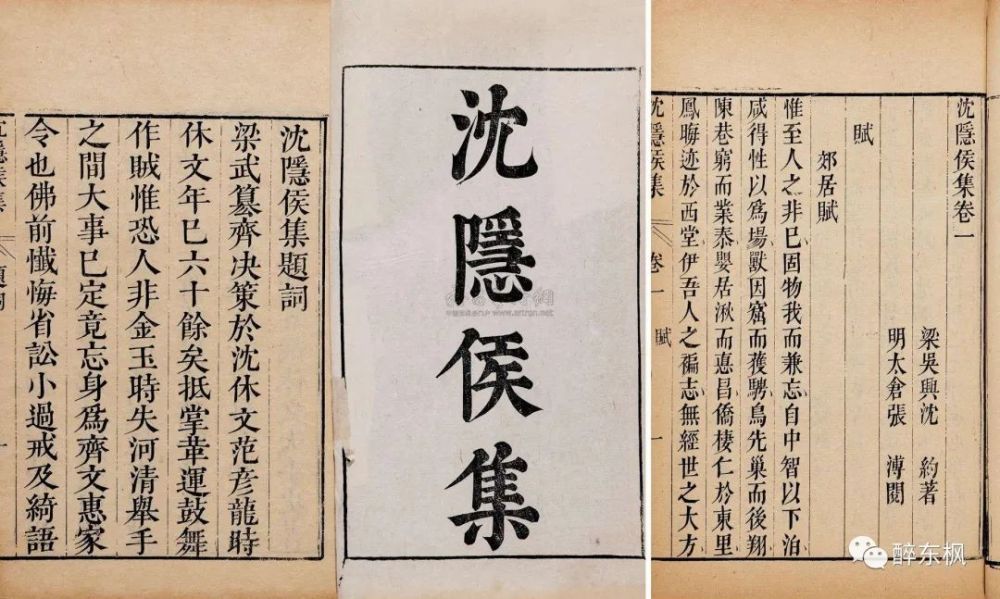 沈隱侯集題詞
梁武篡齊决策於沈休文范彦龍時
休文年巳六十餘矣抵掌革運鼓舞
作賊惟恐人非金玉時失河清舉手
之間大事巳定竟忘身爲齊文惠家
令也佛前懺悔省訟小過戒及綺語
沈隱侯集
沈隱侯集卷一
梁吳興沈 約著
明太倉張 溥閱
賦
郊居賦
惟至人之非巳固物我而兼忘自中智以下洎
咸得性以爲場獸因窟而獲騁鳥先巢而後翔
陳巷窮而業泰嬰居湫而悳昌僑棲仁於東里
鳳晦迹於西堂伊吾人之褊志無經世之大方
沈隱侯集 卷一 賦 一
醉东枫